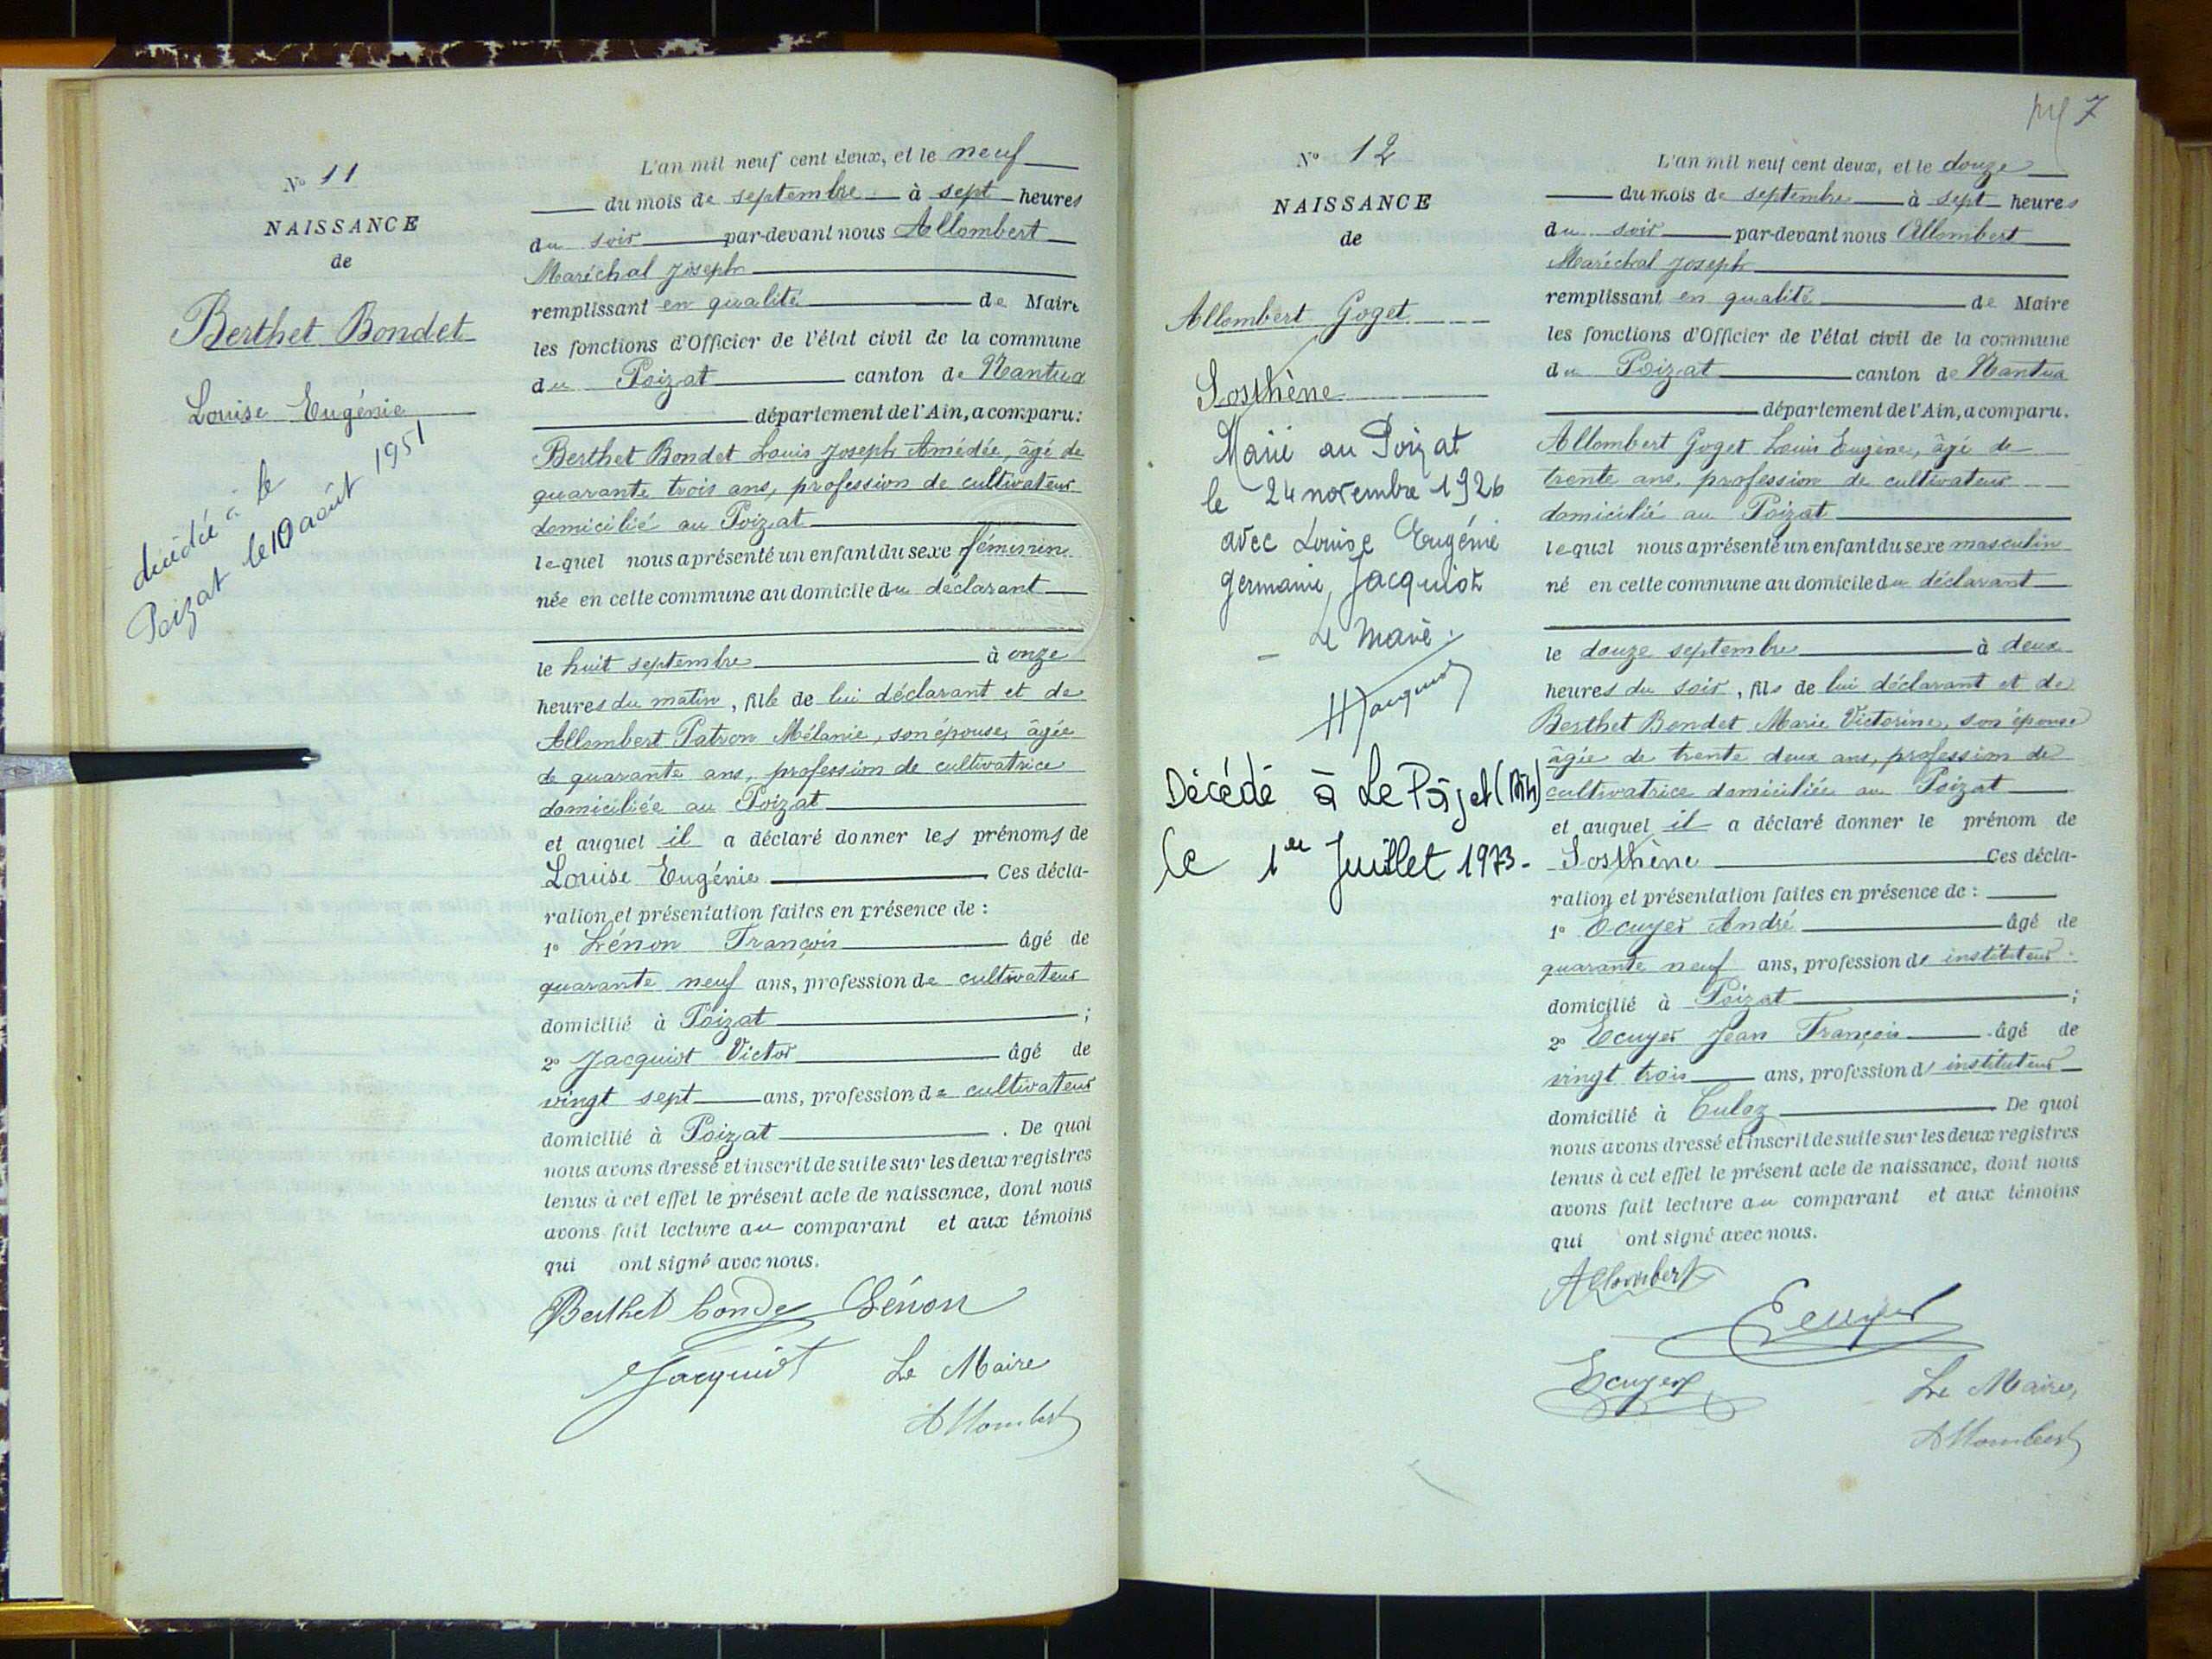 N° 11
NAISSANCE
de
Berthet Bondet
Louise Eugénie
décédée à le
Poizat le 10 août 1951
L'an mil neuf cent deux, et le neuf
du mois de septembre à sept heures
du soir par-devant nous Allombert
Maréchal Joseph
remplissant en qualité de Maire
les fonctions d'Officier de l'état civil de la commune
du Poizat canton de Nantua
département de l'Ain, a comparu:
Berthet Bondet Louis Joseph Amédée, âgé de
quarante trois ans, profession de cultivateur
domicilié au Poizat
lequel nous a présenté un enfant du sexe féminin
née en cette commune au domicile du déclarant
le huit septembre à onze
heures du matin, fille de lui déclarant et de
Allombert Patron Mélanie, son épouse, âgée
de quarante ans, profession de cultivatrice
domiciliée au Poizat
et auquel il a déclaré donner les prénoms de
Louise Eugénie Ces décla-
ration et présentation faites en présence de :
1° Lénon François âgé de
quarante neuf ans, profession de cultivateur
domicilié à Poizat ;
2° Jacquiot Victor âgé de
vingt sept ans, profession de cultivateur
domicilié à Poizat . De quoi
nous avons dressé et inscrit de suite sur les deux registres
tenus à cet effet le présent acte de naissance, dont nous
avons fait lecture au comparant et aux témoins
qui ont signé avec nous.
Berthet bondet Lénon
Jacquiot Le Maire
Allombert
7
N° 12
NAISSANCE
de
Allombert Goget
Sosthène
Marié au Poizat
le 24 novembre 1926
avec Louise Eugénie
Germaine Jacquiot
Le Maire
HJacquiot
Décédé à Le Poizat (Ain)
le 1er Juillet 1973.
L'an mil neuf cent deux, et le douze
du mois de septembre à sept heures
du soir par-devant nous Allombert
Maréchal Joseph
remplissant en qualité de Maire
les fonctions d'Officier de l'état civil de la commune
du Poizat canton de Nantua
département de l'Ain, a comparu.
Allombert Goget Louis Eugène, âgé de
trente ans, profession de cultivateur
domicilié au Poizat
lequel nous a présenté un enfant du sexe masculin
né en cette commune au domicile du déclarant
le douze septembre à deux
heures du soir, fils de lui déclarant et de
Berthet Bondet Marie Victorine, son épouse
âgée de trente deux ans, profession de
cultivatrice domiciliée au Poizat
et auquel il a déclaré donner le prénom de
Sosthène Ces décla-
ration et présentation faites en présence de :
1° Ecuyer André âgé de
quarante neuf ans, profession de instituteur
domicilié à Poizat ;
2° Ecuyer Jean François âgé de
vingt trois ans, profession d' instituteur
domicilié à Culoz De quoi
nous avons dressé et inscrit de suite sur les deux registres
tenus à cet effet le présent acte de naissance, dont nous
avons fait lecture au comparant et aux témoins
qui ont signé avec nous.
Allombert
Ecuyer
Ecuyer Le Maire,
Allombert